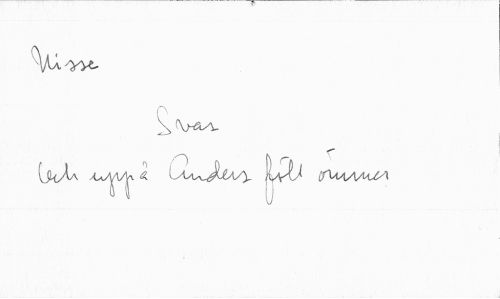 Nisse
Svar
och uppå Anders föll ömmer